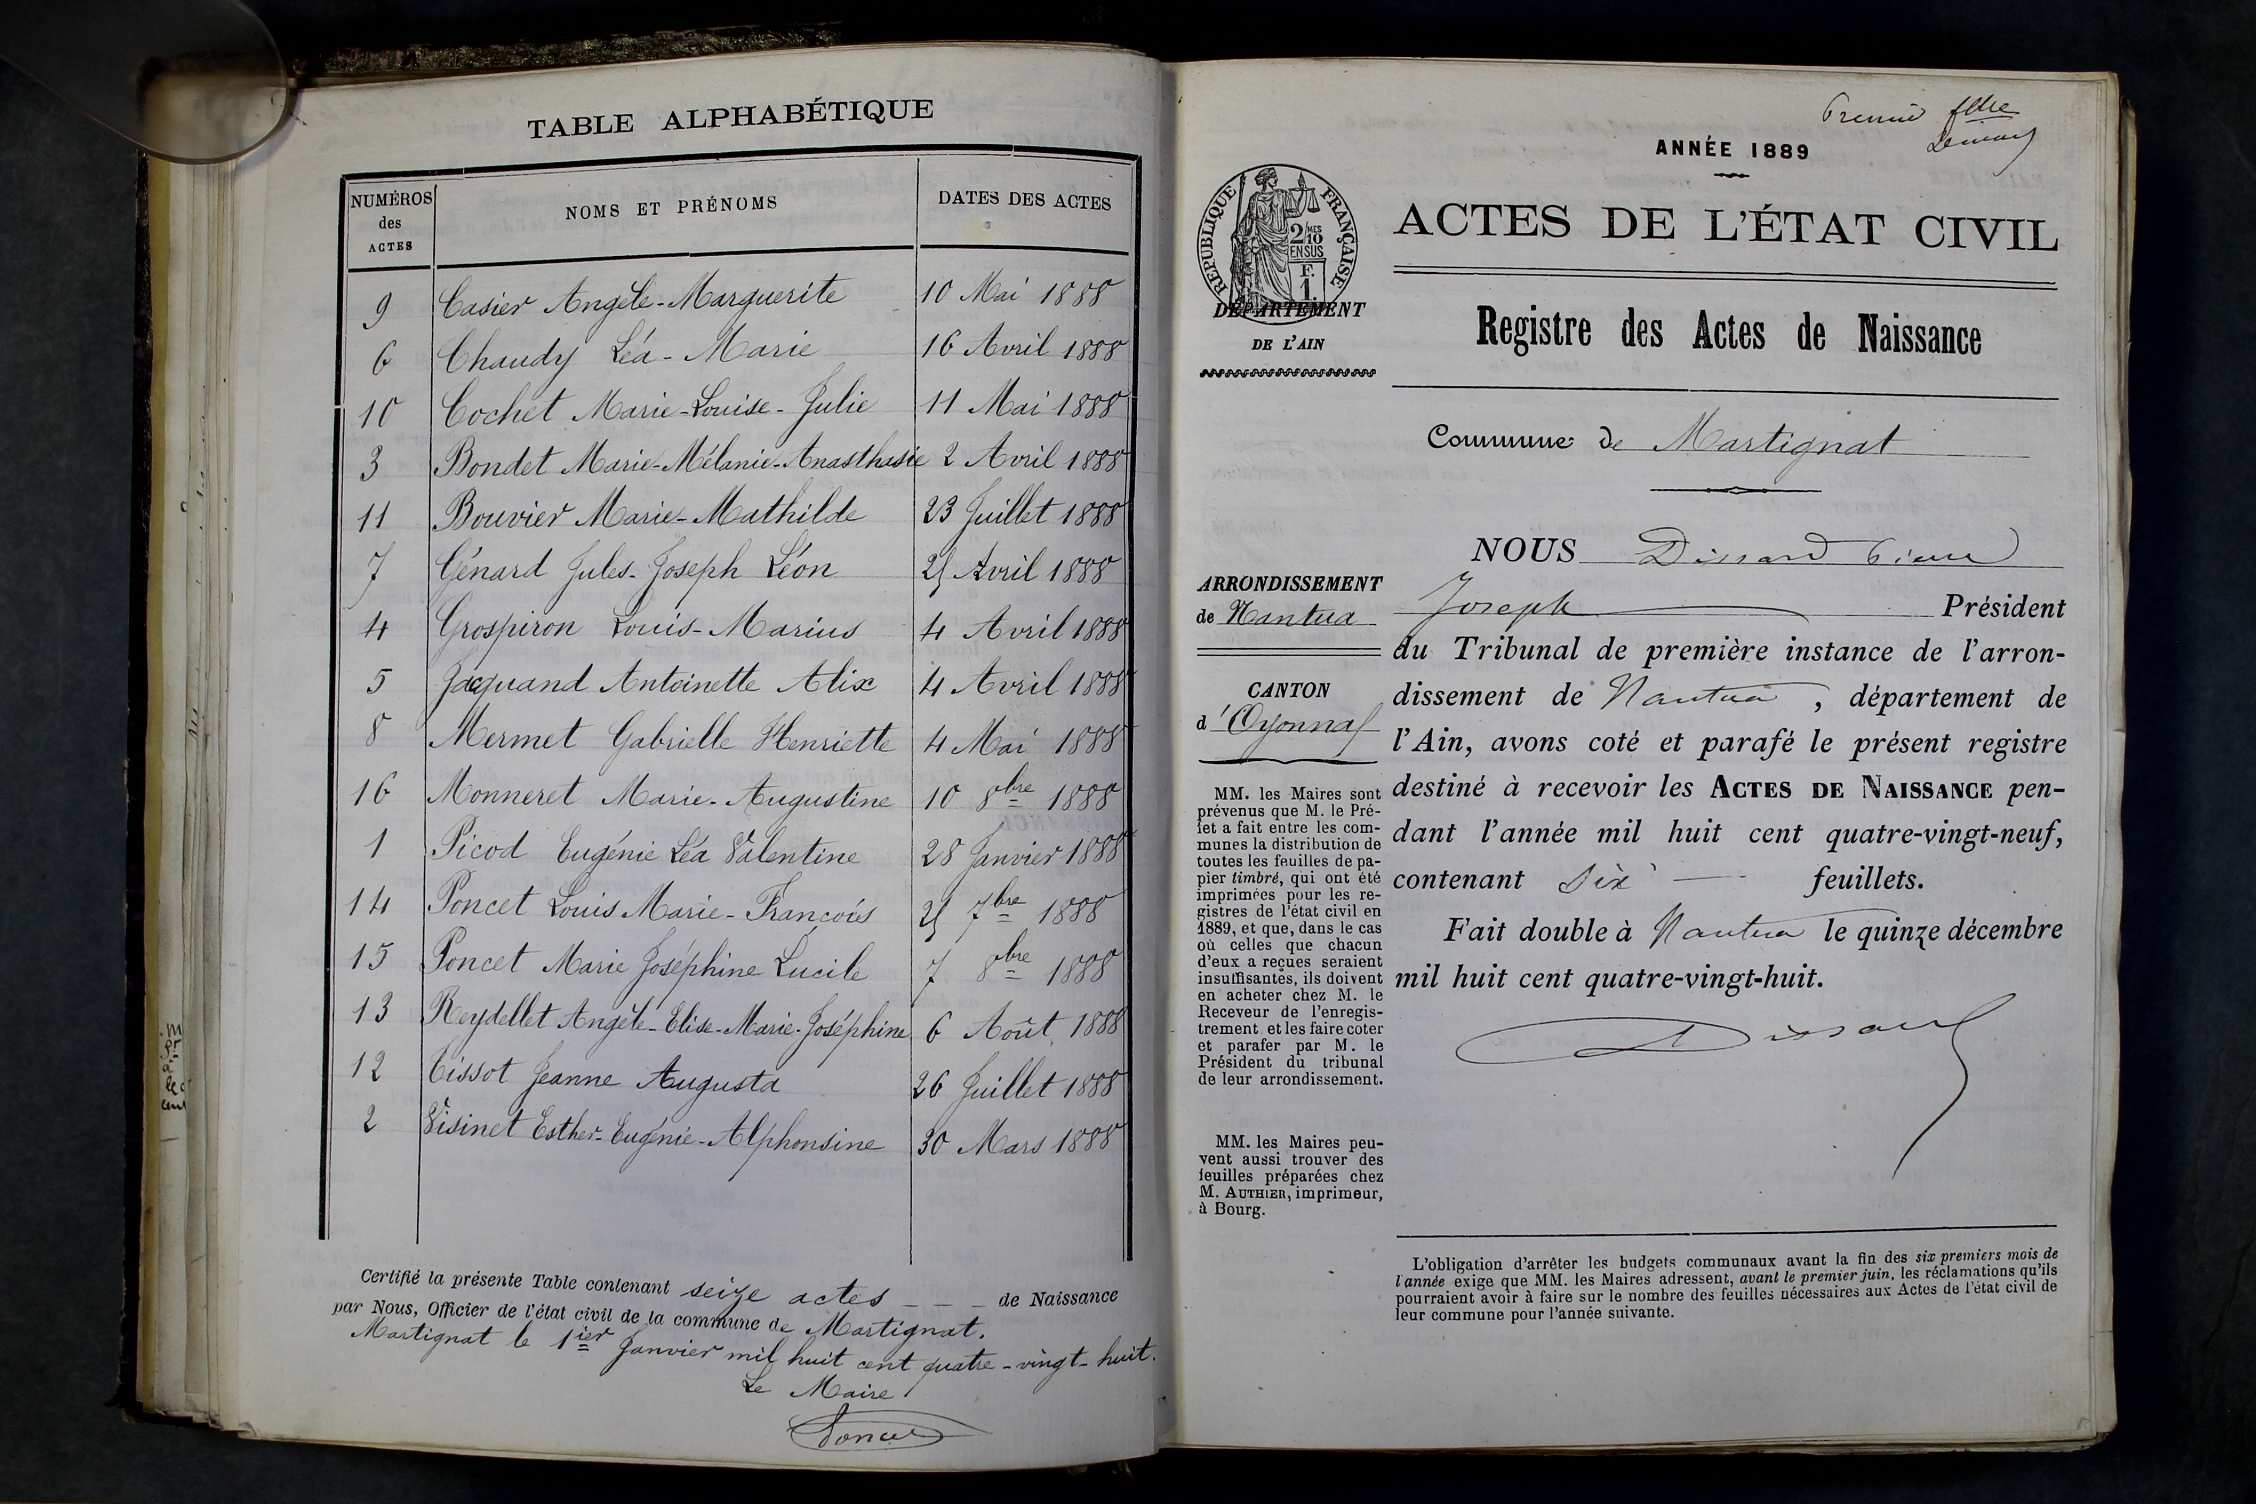 TABLE ALPHABÉTIQUE
NUMÉROS des ACTES NOMS ET PRÉNOMS DATES DES ACTES
9 Casier Angèle-Marguerite 10 Mai 1888
6 Chaudy Léa-Marie 16 Avril 1888
10 Cochet Marie-Louise-Julie 11 Mai 1888
3 Bondet Marie-Mélanie-Anasthasie 2 Avril 1888
11 Bouvier Marie-Mathilde 23 Juillet 1888
7 Génard Jules-Joseph Léon 25 Avril 1888
4 Grospiron Louis-Marius 4 Avril 1888
5 Jacquand Antoinette Alix 4 Avril 1888
8 Mermet Gabrielle Henriette 4 Mai 1888
16 Monneret Marie-Augustine 10 8bre 1888
1 Picod Eugénie Léa Valentine 28 Janvier 1888
14 Poncet Louis Marie-François 25 7bre 1888
15 Poncet Marie Joséphine Lucile 7 8bre 1888
13 Reydellet Angèle-Elise-Marie-Joséphine 6 Août 1888
12 Tissot Jeanne Augusta 26 Juillet 1888
2 Visinet Esther-Eugénie-Alphonsine 30 Mars 1888
Certifié la présente Table contenant seize actes - - - de Naissance
par Nous, Officier de l'état civil de la commune de Martignat.
Martignat le 1ier Janvier mil huit cent quatre-vingt-huit.
Le Maire
Poncet
Premier
ANNÉE 1889
RÉPUBLIQUE FRANÇAISE
2/10 MES
EN SUS
F.
1
ACTES DE L'ÉTAT CIVIL
DÉPARTEMENT
DE L'AIN
Registre des Actes de Naissance
Commune de Martignat
ARRONDISSEMENT
de Nantua
CANTON
d'Oyonnax
MM. les Maires sont
prévenus que M. le Pré-
fet a fait entre les com-
munes la distribution de
toutes les feuilles de pa-
pier timbré, qui ont été
imprimées pour les re-
gistres de l'état civil en
1889, et que, dans le cas
où celles que chacun
d'eux a reçues seraient
insuffisantes, ils doivent
en acheter chez M. le
Receveur de l'enregis-
trement et les faire coter
et parafer par M. le
Président du tribunal
de leur arrondissement.
MM. les Maires peu-
vent aussi trouver des
feuilles préparées chez
M. AUTHIER, imprimeur,
à Bourg.
NOUS Dissard Pierre
Joseph Président
du Tribunal de première instance de l'arron-
dissement de Nantua, département de
l'Ain, avons coté et parafé le présent registre
destiné à recevoir les ACTES DE NAISSANCE pen-
dant l'année mil huit cent quatre-vingt-neuf,
contenant dix feuillets.
Fait double à Nantua le quinze décembre
mil huit cent quatre-vingt-huit.
Dissard
L'obligation d'arrêter les budgets communaux avant la fin des six premiers mois de
l'année exige que MM. les Maires adressent, avant le premier juin, les réclamations qu'ils
pourraient avoir à faire sur le nombre des feuilles nécessaires aux Actes de l'état civil de
leur commune pour l'année suivante.